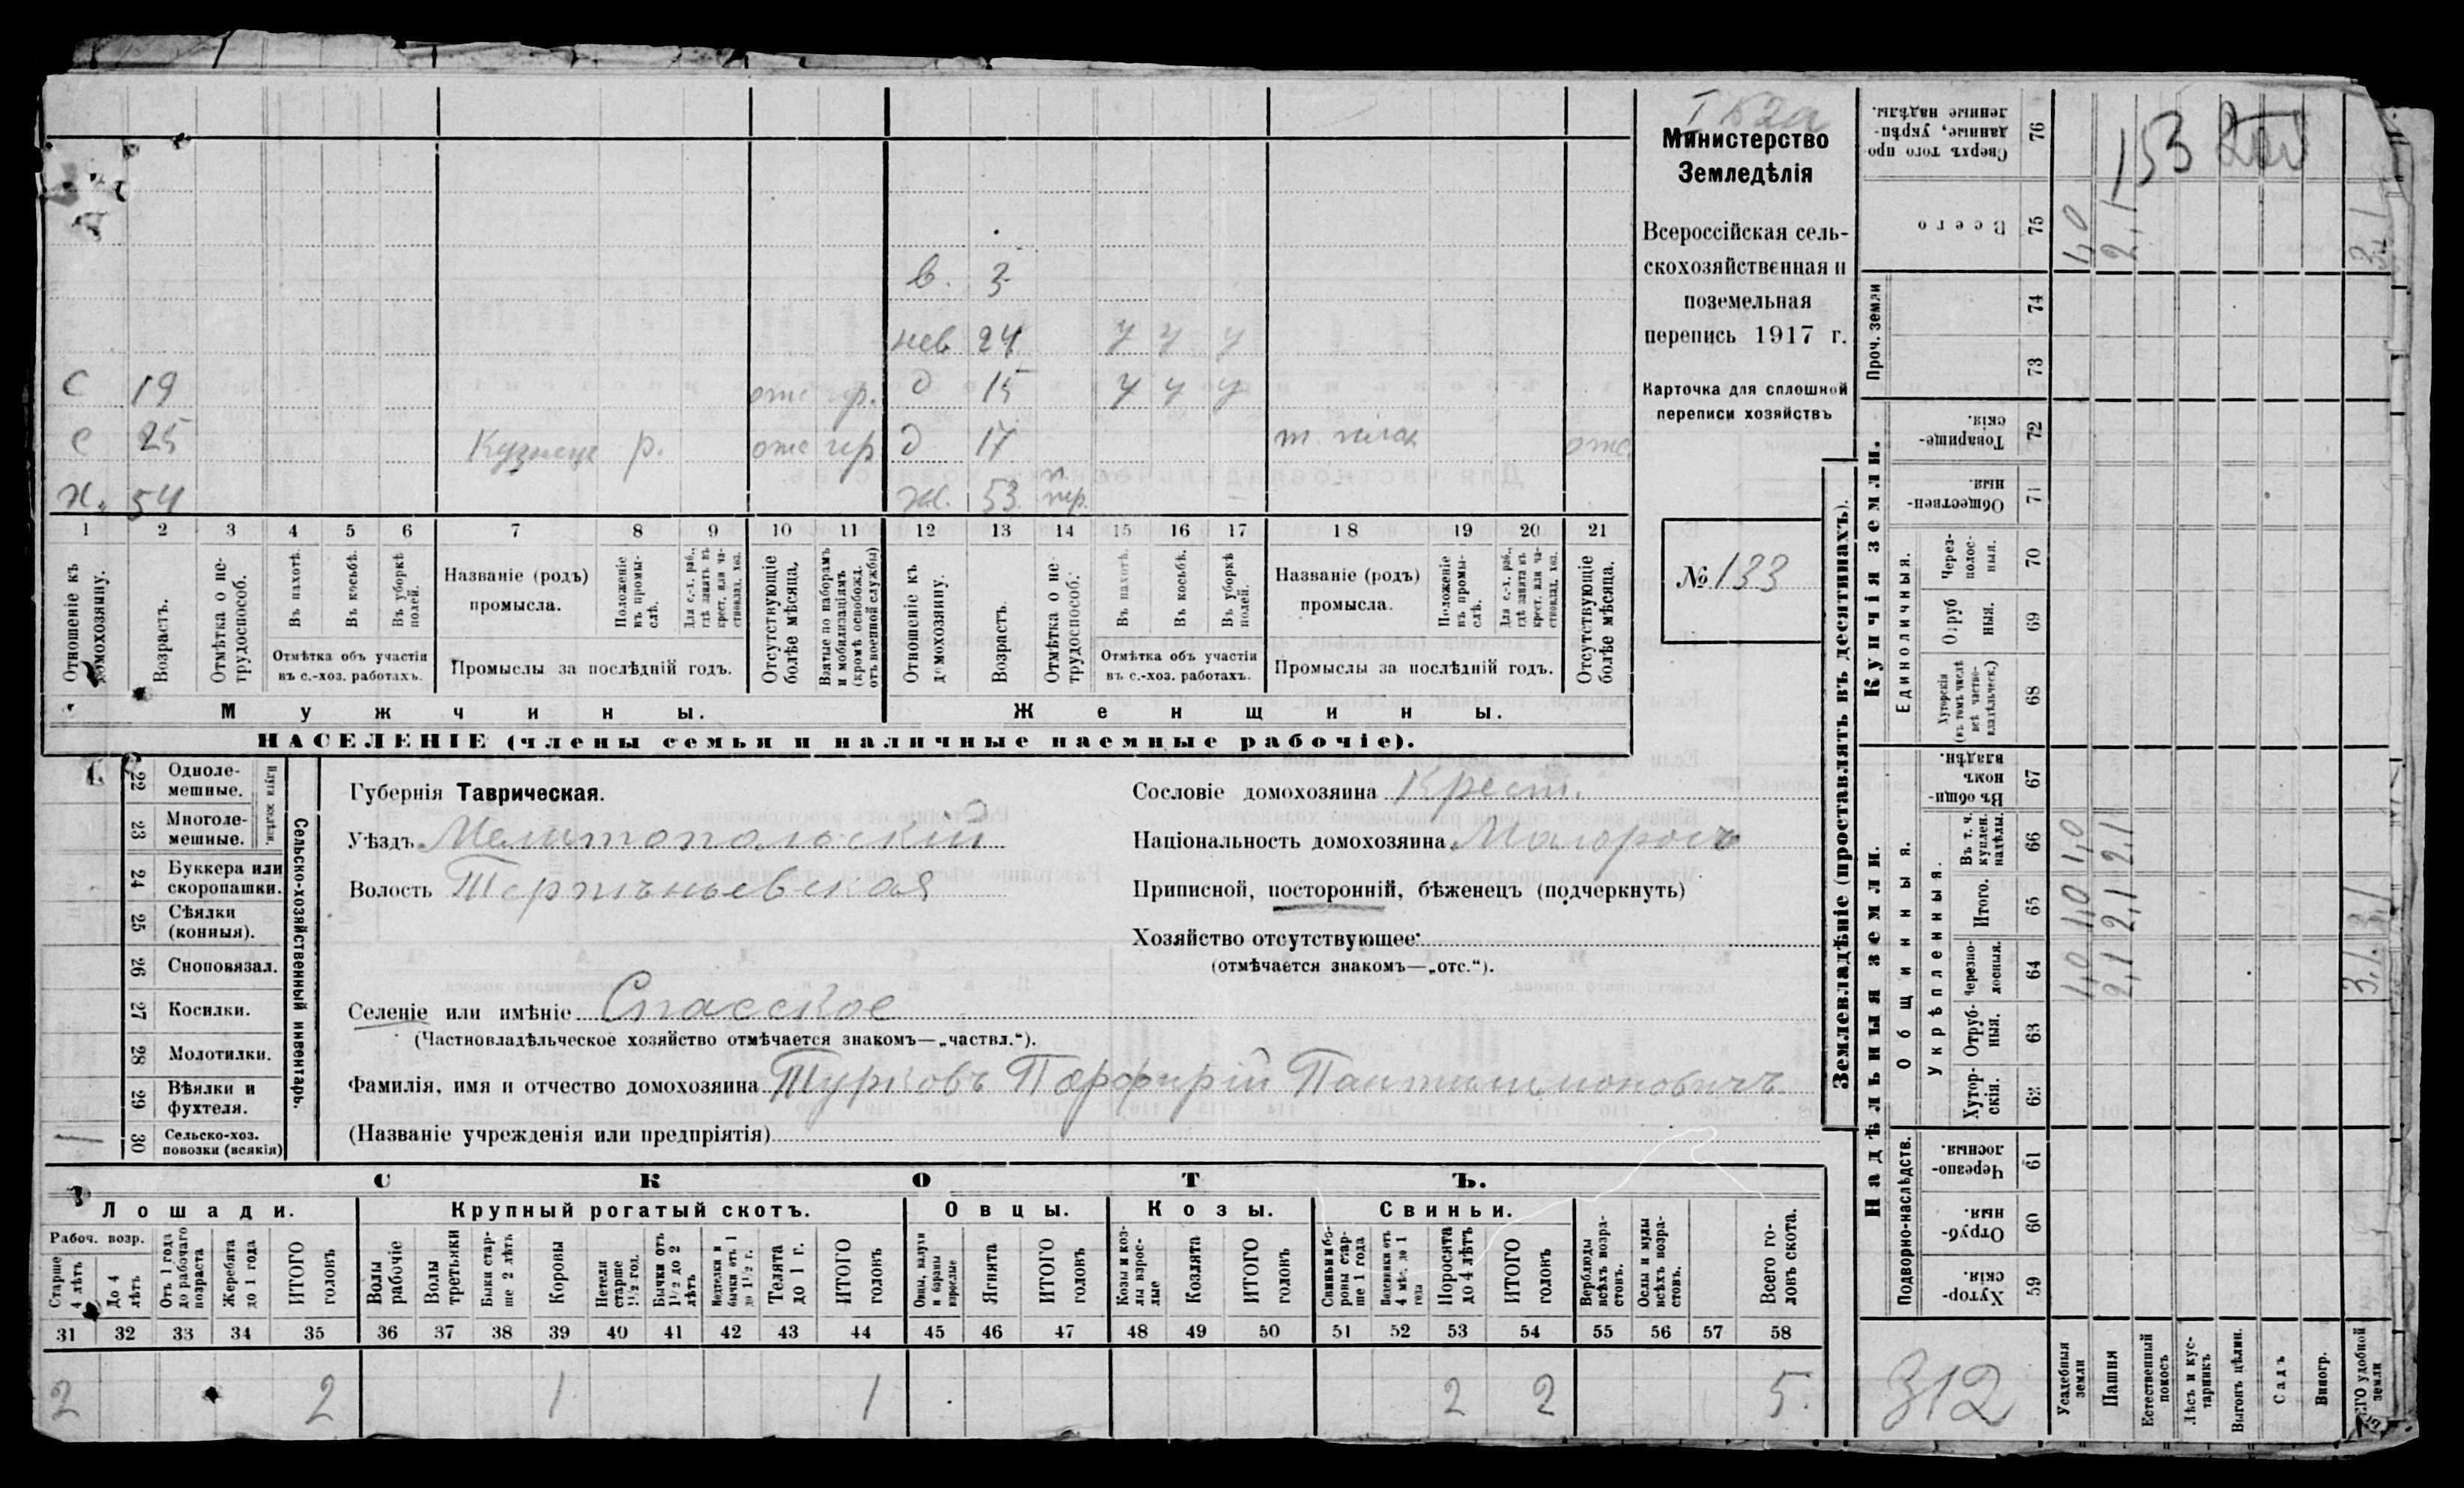 I
Министерство
Земледѣлія
Всероссійская сель-
скохозяйственная и
поземельная
перепись 1917 г.
Карточка для сплошной
переписи хозяйствъ
№ 133
в. 3
нев 24 у у у
С 19 отс д 15 у у у
с 25 Кузнецъ р. отс д 17 отс.
х. 54 ж. 53
1 2 3 4 5 6 7 8 9 10 11 12 13 14 15 16 17 18 19 20 21
Отношеніе къ домохозяину.
Возрастъ.
Отмѣтка о не-трудоспособ.
Въ пахотѣ.
Въ косьбѣ.
Въ уборкѣ полей.
Отмѣтка объ участіи
въ с.-хоз. работахъ.
Названіе (родъ)
промысла.
Положеніе въ промы-слѣ.
Для с.-х. раб., гдѣ занятъ въ крест. или ча-стновлад. хоз.
Промыслы за послѣдній годъ.
Отсутствующіе болѣе мѣсяца.
Взятые по наборамъ и мобилизаціямъ (кромѣ освобожд. отъ военной службы)
Отношеніе къ домохозяину.
Возрастъ.
Отмѣтка о не-трудоспособ.
Въ пахотѣ.
Въ косьбѣ.
Въ уборкѣ полей.
Отмѣтка объ участіи
въ с.-хоз. работахъ.
Названіе (родъ)
промысла.
Положеніе въ промы-слѣ.
Для с.-х. раб., гдѣ занята въ крест. или ча-стновлад. хоз.
Промыслы за послѣдній годъ.
Отсутствующіе болѣе мѣсяца.
Мужчины.
Женщины.
НАСЕЛЕНІЕ (члены семьи и наличные наемные рабочіе).
22 Одноле-мешные.
23 Многоле-мешные.
24 Буккера или скоропашки.
25 Сѣялки (конныя).
26 Сноповязал.
27 Косилки.
28 Молотилки.
29 Вѣялки и фухтеля.
30 Сельско-хоз. повозки (всякія)
Сельско-хозяйственный инвентарь.
Губернія Таврическая.
Уѣздъ Мелитопольскій
Волость Терпѣньевская
Селеніе или имѣніе Спасское
(Частновладѣльческое хозяйство отмѣчается знакомъ—„частвл.“).
Фамилія, имя и отчество домохозяина Турковъ Порфирій Пантилимоновичъ
(Названіе учрежденія или предпріятія)
Сословіе домохозяина Крест.
Національность домохозяина Малоросъ
Приписной, посторонній, бѣженецъ (подчеркнуть)
Хозяйство отсутствующее:
(отмѣчается знакомъ—„отс.“).
СКОТЪ.
Лошади.
Крупный рогатый скотъ.
Овцы.
Козы.
Свиньи.
Рабоч. возр.
Старше 4 лѣтъ
До 4 лѣтъ
Отъ 1 года до рабочаго возраста
Жеребята до 1 года
ИТОГО головъ
Волы рабочіе
Волы третьяки
Быки стар-ше 2 лѣтъ
Коровы
Нетели старше 1½ год.
Бычки отъ 1½ до 2 лѣтъ
Телки и бычки отъ 1 до 1½ г.
Телята до 1 г.
ИТОГО головъ
Овцы, валухи и бараны взрослые
Ягнята
ИТОГО головъ
Козы и коз-лы взрос-лые
Козлята
ИТОГО головъ
Свиньи бо-ровы стар-ше 1 года
Подсвинки отъ 4 мѣс. до 1 года
Поросята до 4 лѣтъ
ИТОГО головъ
Верблюды всѣхъ возра-стовъ.
Ослы и мулы всѣхъ возра-стовъ.
Всего го-ловъ скота.
31 32 33 34 35 36 37 38 39 40 41 42 43 44 45 46 47 48 49 50 51 52 53 54 55 56 57 58
2 2 1 1 2 2 5.
Землевладѣніе (проставлять въ десятинахъ).
Надѣльныя земли.
Купчія земли.
Проч. земли
Подворно-наслѣдств.
Общинныя.
Укрѣпленныя.
Единоличныя.
Сверхъ того про-данные, укрѣп-ленные надѣлы. 76
Всего 75 1,0 2,1 3,1
74
73
Товарище-скія. 72
Обществен-ныя. 71
Через-полос-ныя. 70
Отруб-ныя. 69
Хуторскія (въ томъ числѣ всѣ частно-владѣльческ.) 68
Въ общи-номъ владѣн. 67
Въ т. ч. куплен. надѣлы. 66 1,0 2,1
Итого. 65 1,0 2,1 3,1
Черезпо-лосныя. 64 1,0 2,1 3,1
Отруб-ныя. 63
Хутор-скія. 62
Черезпо-лосныя. 61
Отруб-ныя. 60
Хутор-скія. 59
153
312
Усадебныя земли
Пашня
Естественный покосъ
Лѣсъ и кус-тарникъ
Выгонъ цѣлин.
Садъ
Виногр.
удобной земли